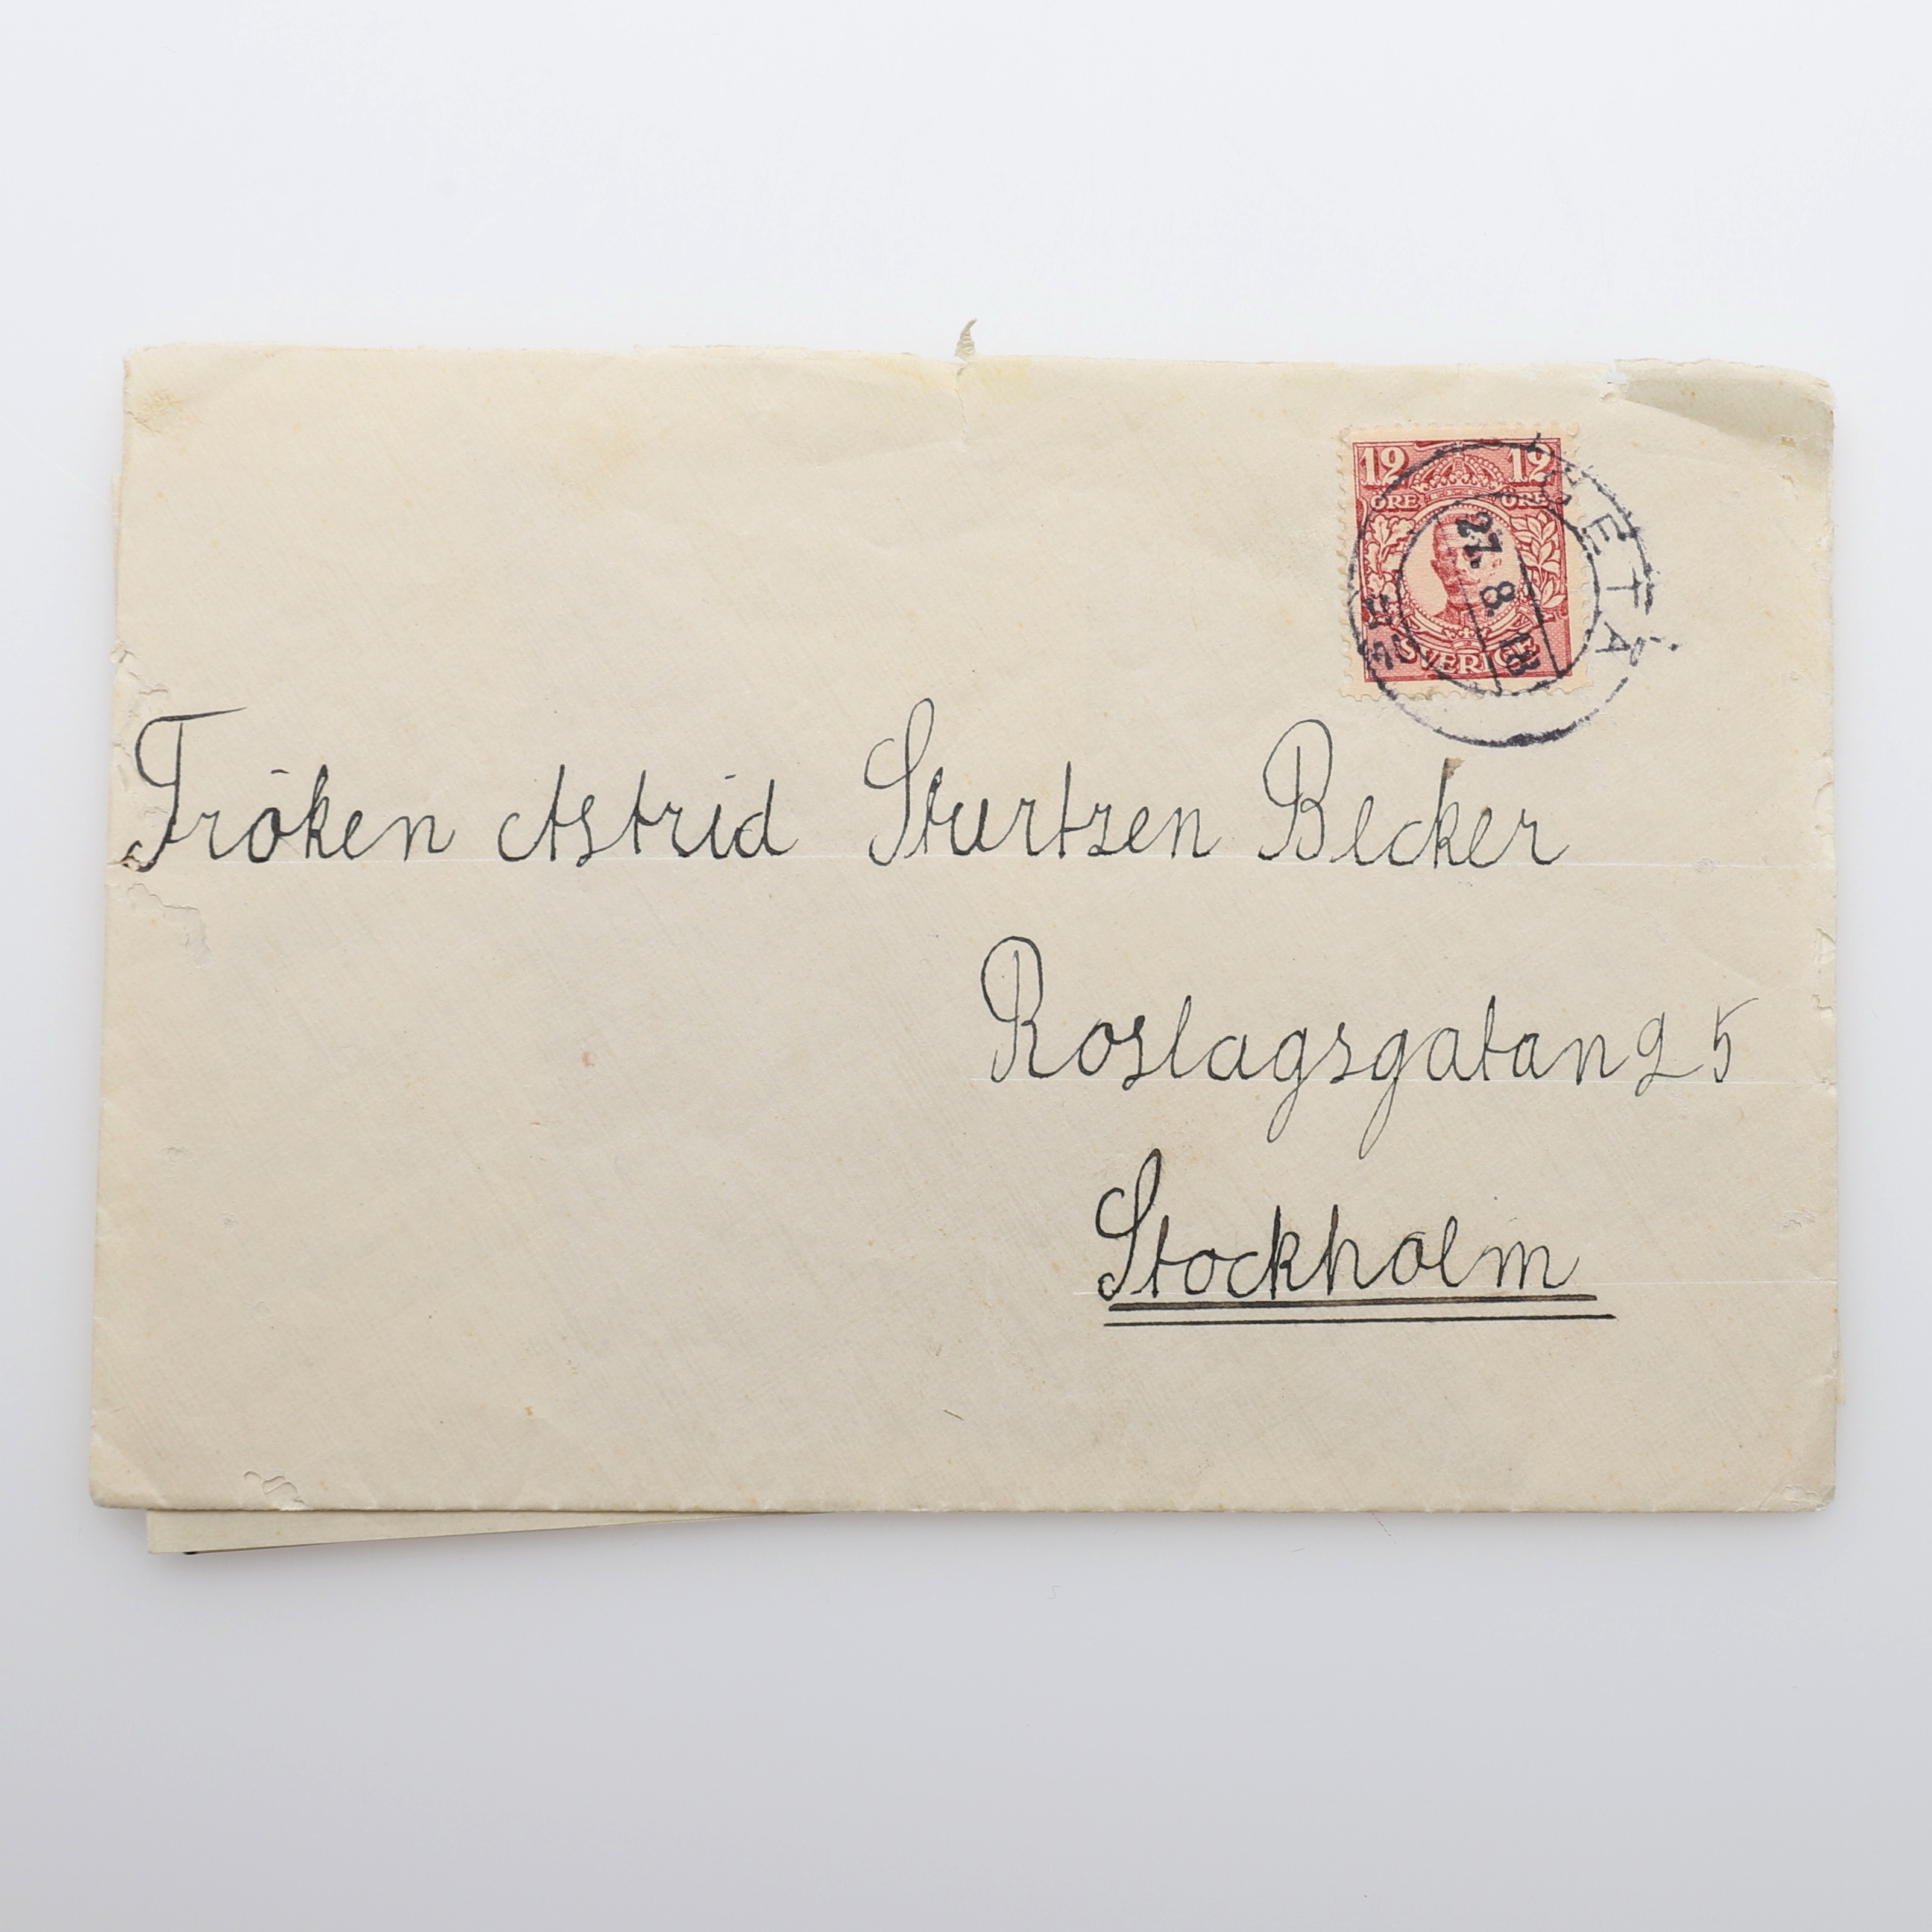 12 12
ÖRE ÖRE
27. 8. 18
SVERIGE
Fröken Astrid Sturtzen Becker
Roslagsgatan 25
Stockholm